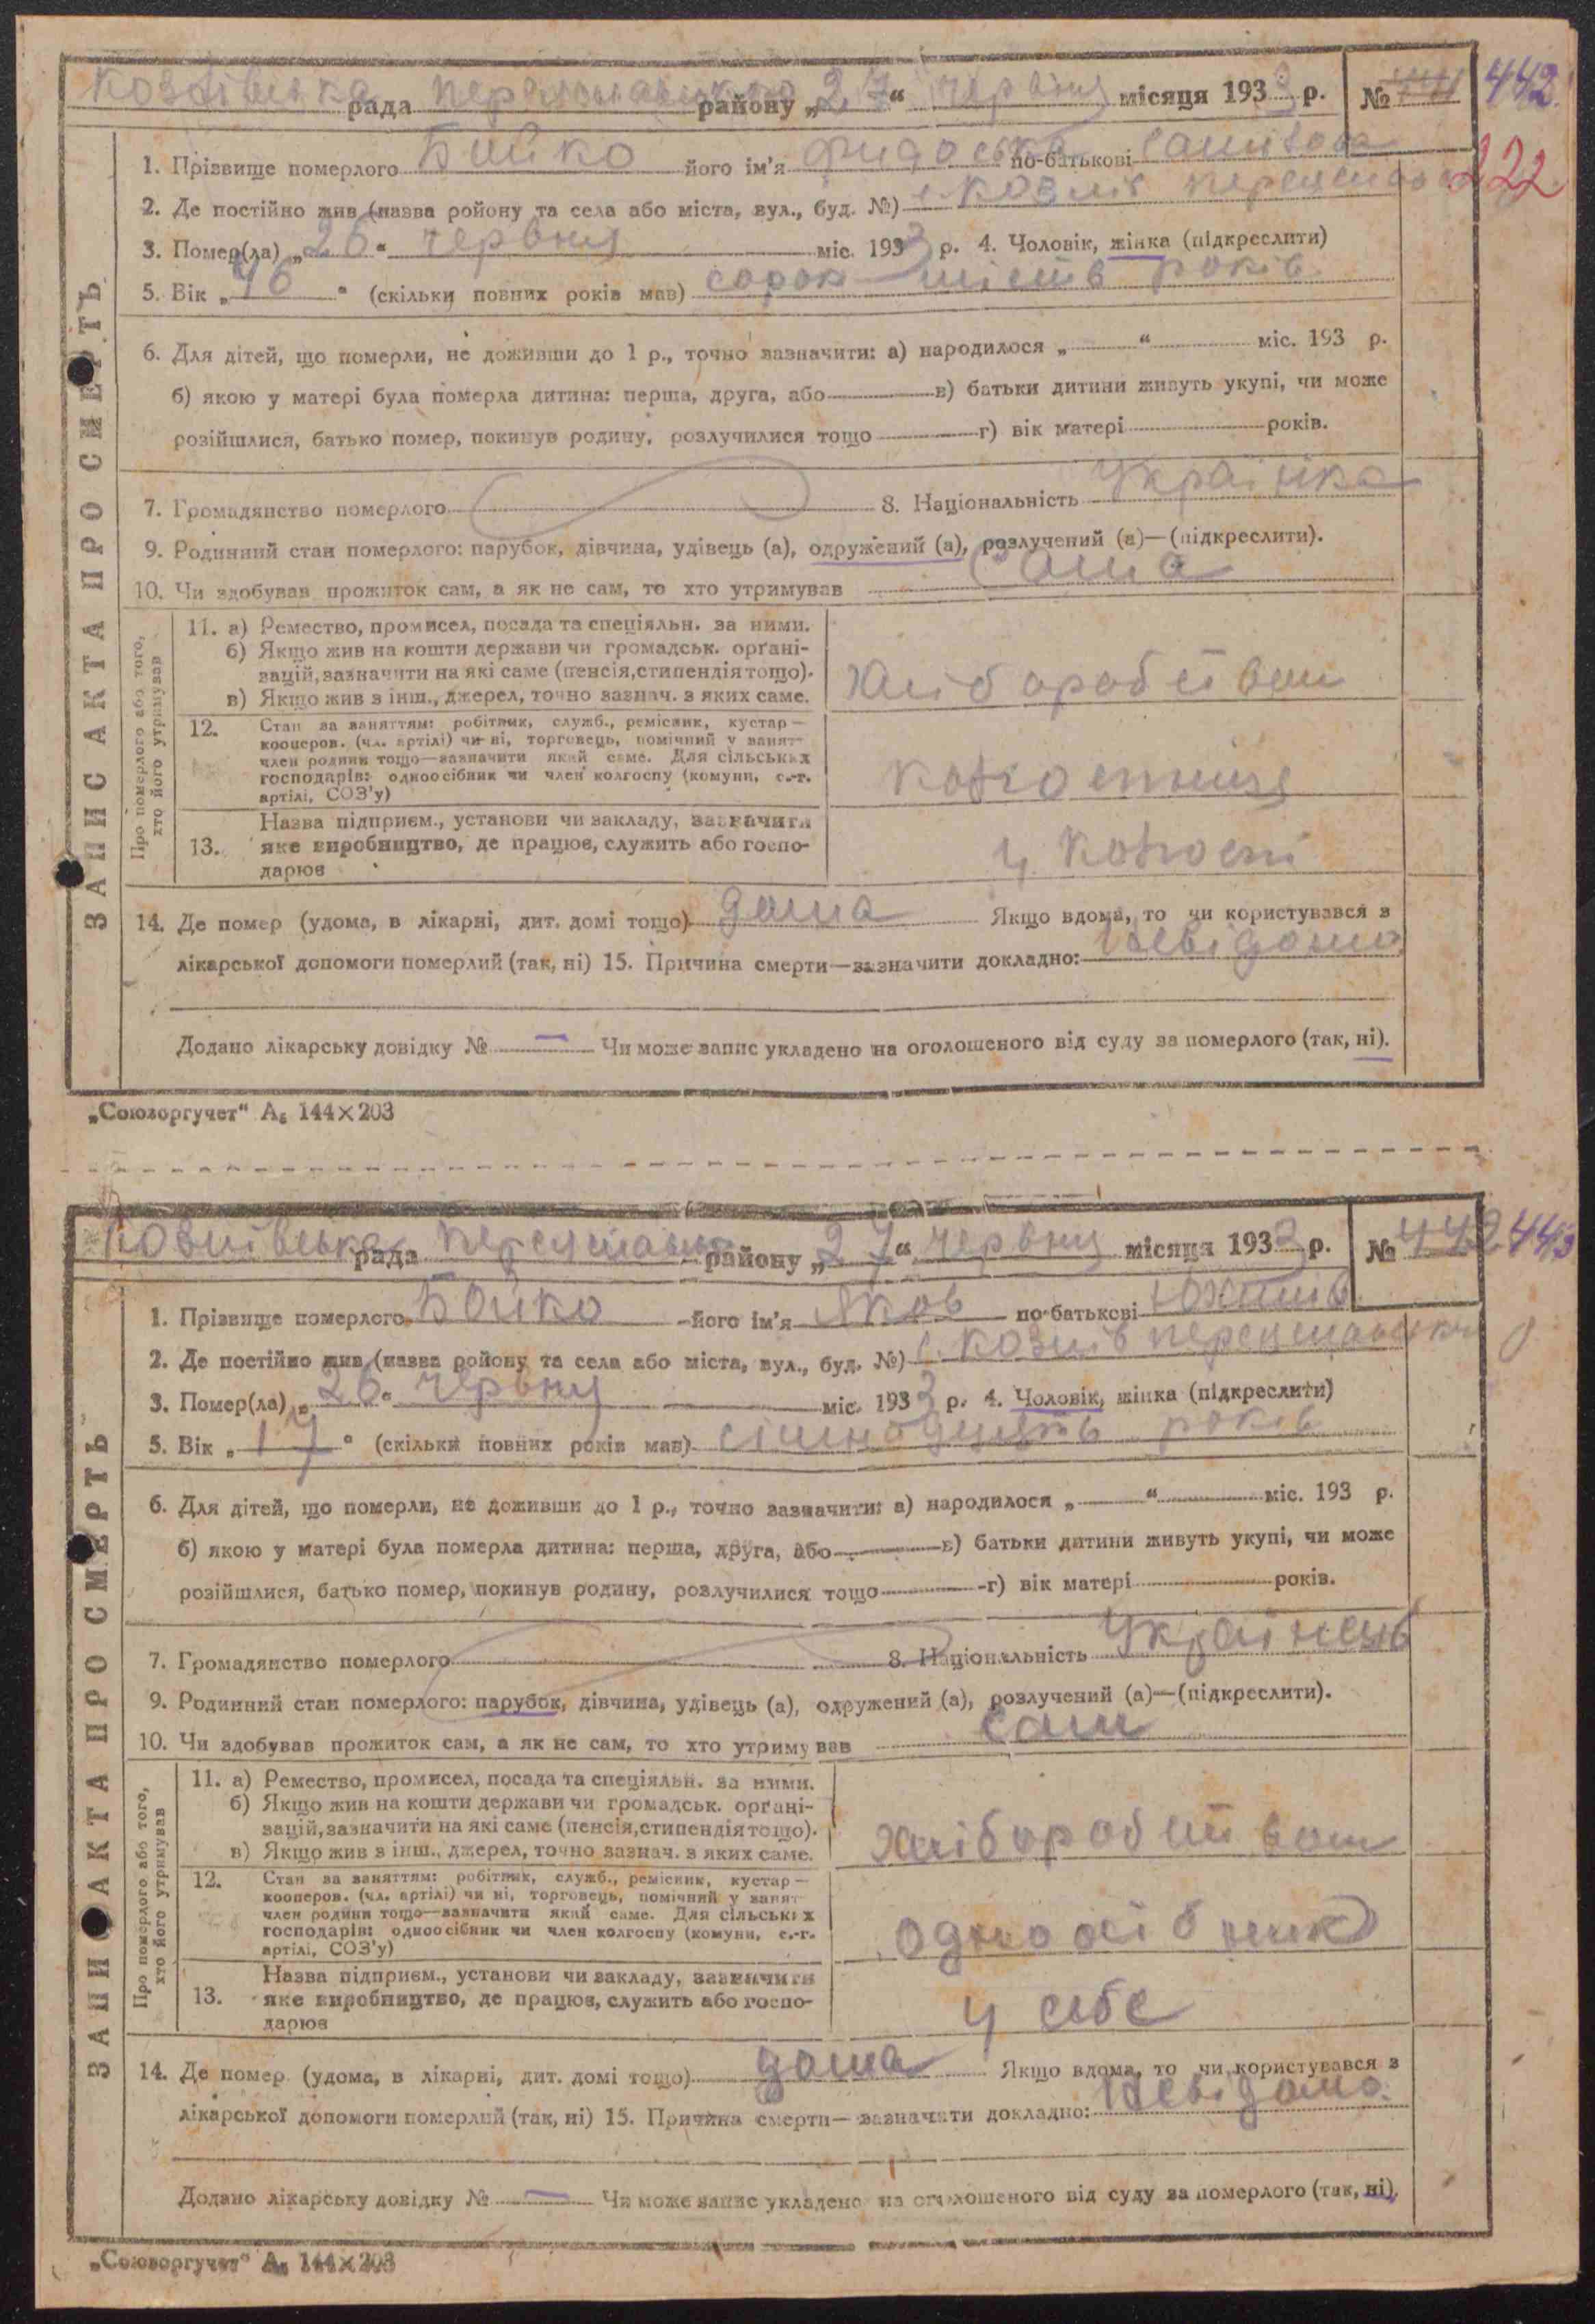 Козлівська рада Переяславського району „27“ червня місяця 1933 р. № 441 442
1. Прізвище померлого Бойко його ім'я Федоська по-батькові
222
2. Де постійно жив (назва ройону та села або міста, вул., буд. №) с. Козлів Переяславськ
3. Помер(ла) „26“ червня міс. 1933 р. 4. Чоловік, жінка (підкреслити)
5. Вік „46“ (скільки повних років мав) сорок шість років
6. Для дітей, що померли, не доживши до 1 р., точно зазначити: а) народилося „ “ міс. 193 р.
б) якою у матері була померла дитина: перша, друга, або в) батьки дитини живуть укупі, чи може
розійшлися, батько помер, покинув родину, розлучилися тощо г) вік матері років.
7. Громадянство померлого 8. Національність Українка
9. Родинний стан померлого: парубок, дівчина, удівець (а), одружений (а), розлучений (а)—(підкреслити).
10. Чи здобував прожиток сам, а як не сам, то хто утримував сама
ЗАПИС АКТА ПРО СМЕРТЬ
Про померлого або того,
хто його утримував
11. а) Ремество, промисел, посада та спеціяльн. за ними.
б) Якщо жив на кошти держави чи громадськ. орґані-
зацій, зазначити на які саме (пенсія, стипендія тощо).
в) Якщо жив з інш., джерел, точно зазнач. з яких саме.
хліборобством
12. Стан за заняттям: робітник, служб., ремісник, кустар—
кооперов. (чл. артілі) чи ні, торговець, помічний у занят-
член родини тощо—зазначити який саме. Для сільських
господарів: одноосібник чи член колгоспу (комуни, с.-г.
артілі, СОЗ'у)
колгоспниця
Назва підприєм., установи чи закладу, зазначити
13. яке виробництво, де працює, служить або госпо-
дарює
у колгоспі
14. Де помер (удома, в лікарні, дит. домі тощо) дома Якщо вдома, то чи користувався з
лікарської допомоги померлий (так, ні) 15. Причина смерти—зазначити докладно: невідомо
Додано лікарську довідку № — Чи може запис укладено на оголошеного від суду за померлого (так, ні).
„Союзоргучет“ А₅ 144×203
Козлівська рада Переяславськ району „27“ червня місяця 1933 р. № 442 443
1. Прізвище померлого Бойко його ім'я Яков по-батькові Юхимів
2. Де постійно жив (назва ройону та села або міста, вул., буд. №) с. Козлів Переяславськ
3. Помер(ла) „26“ червня міс. 1933 р. 4. Чоловік, жінка (підкреслити)
5. Вік „17“ (скільки повних років мав) сімнадцять років
6. Для дітей, що померли, не доживши до 1 р., точно зазначити: а) народилося „ “ міс. 193 р.
б) якою у матері була померла дитина: перша, друга, або в) батьки дитини живуть укупі, чи може
розійшлися, батько помер, покинув родину, розлучилися тощо г) вік матері років.
7. Громадянство померлого 8. Національність Українець
9. Родинний стан померлого: парубок, дівчина, удівець (а), одружений (а), розлучений (а)—(підкреслити).
10. Чи здобував прожиток сам, а як не сам, то хто утримував сам
ЗАПИС АКТА ПРО СМЕРТЬ
Про померлого або того,
хто його утримував
11. а) Ремество, промисел, посада та спеціяльн. за ними.
б) Якщо жив на кошти держави чи громадськ. орґані-
зацій, зазначити на які саме (пенсія, стипендія тощо).
в) Якщо жив з інш., джерел, точно зазнач. з яких саме.
хліборобством
12. Стан за заняттям: робітник, служб., ремісник, кустар—
кооперов. (чл. артілі) чи ні, торговець, помічний у занят-
член родини тощо—зазначити який саме. Для сільських
господарів: одноосібник чи член колгоспу (комуни, с.-г.
артілі, СОЗ'у)
одноосібник
Назва підприєм., установи чи закладу, зазначити
13. яке виробництво, де працює, служить або госпо-
дарює
у себе
14. Де помер (удома, в лікарні, дит. домі тощо) дома Якщо вдома, то чи користувався з
лікарської допомоги померлий (так, ні) 15. Причина смерти—зазначити докладно: невідомо.
Додано лікарську довідку № — Чи може запис укладено на оголошеного від суду за померлого (так, ні).
„Союзоргучет“ А₅ 144×203